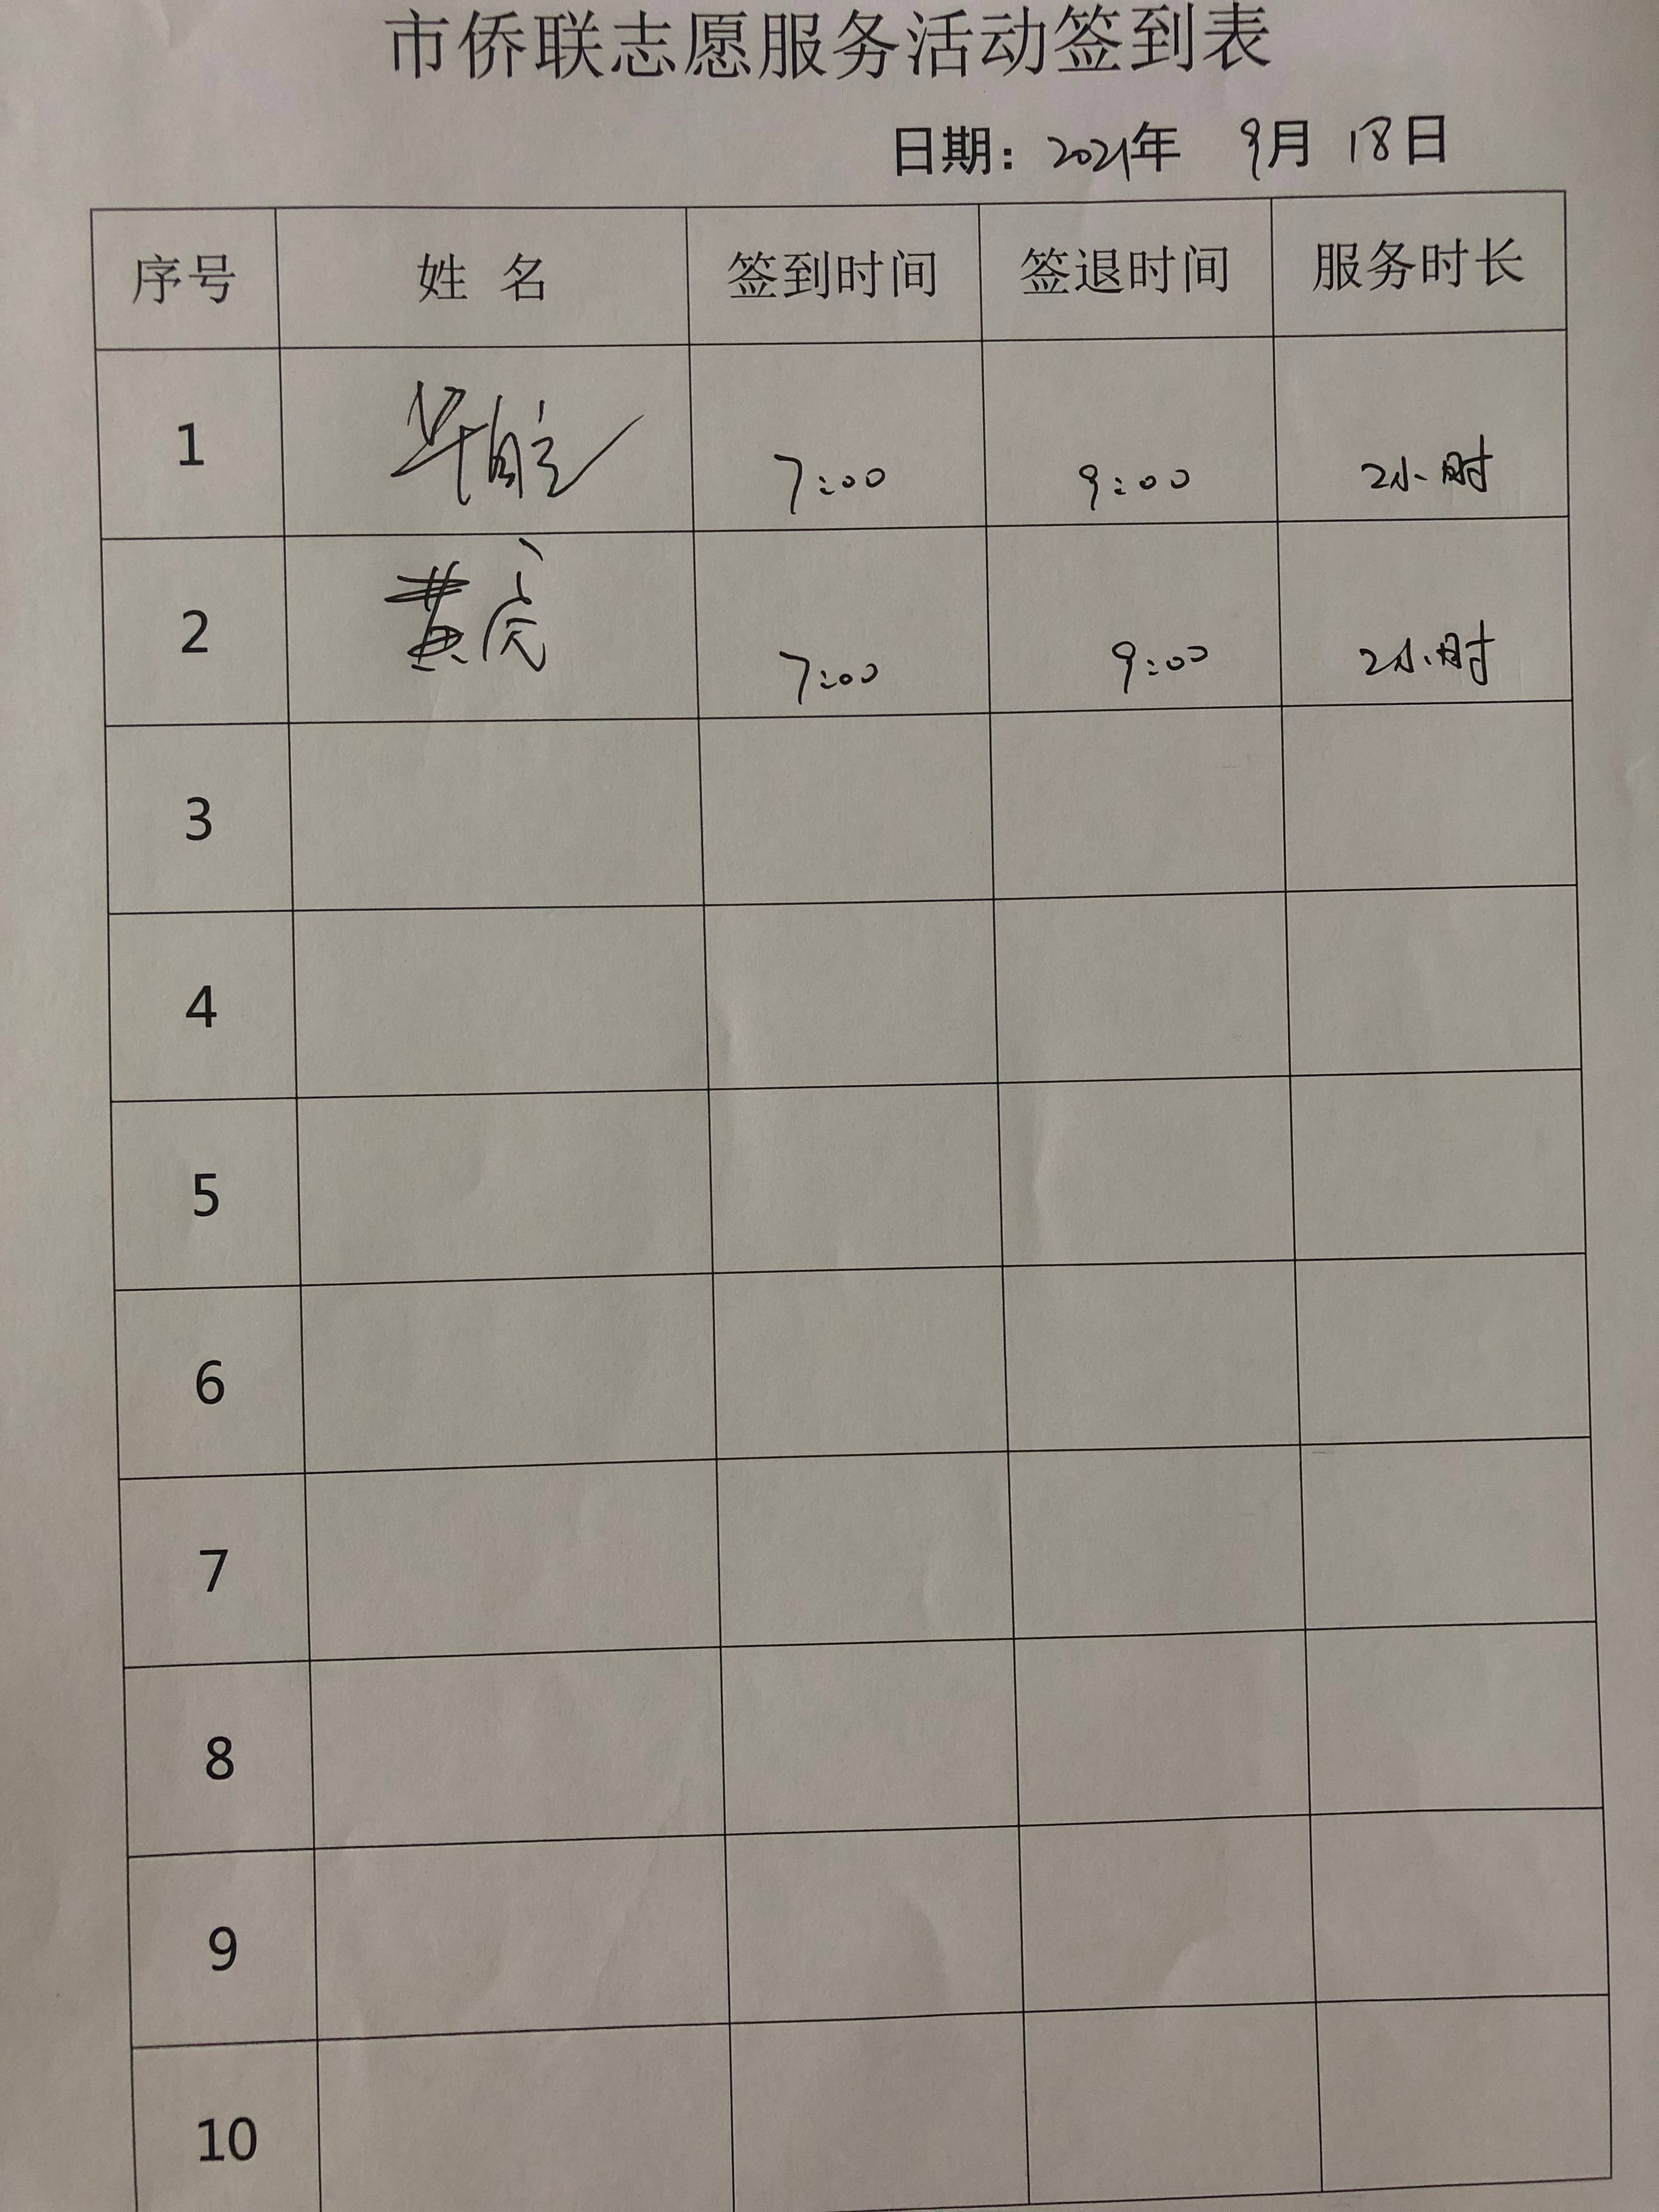 市侨联志愿服务活动签到表
日期：2021年 9月 18日
序号 姓 名 签到时间 签退时间 服务时长
1 7:00 9:00 2小时
2 黄 7:00 9:00 2小时
3
4
5
6
7
8
9
10